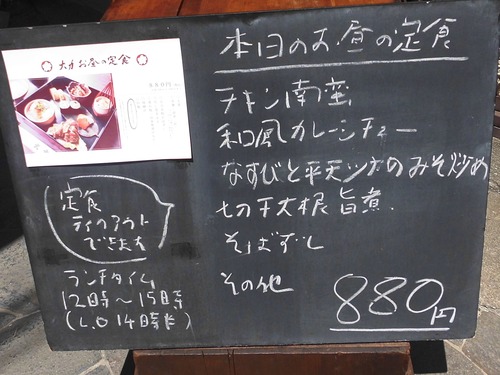 大才お昼の定食
本日のお昼の定食
チキン南蛮
和風カレーシチュー
なすびと平天ツナのみそ炒め
切干大根旨煮
そばずし
その他
880円
定食
テイクアウト
できます
ランチタイム
12時〜15時
(L.O 14時半)